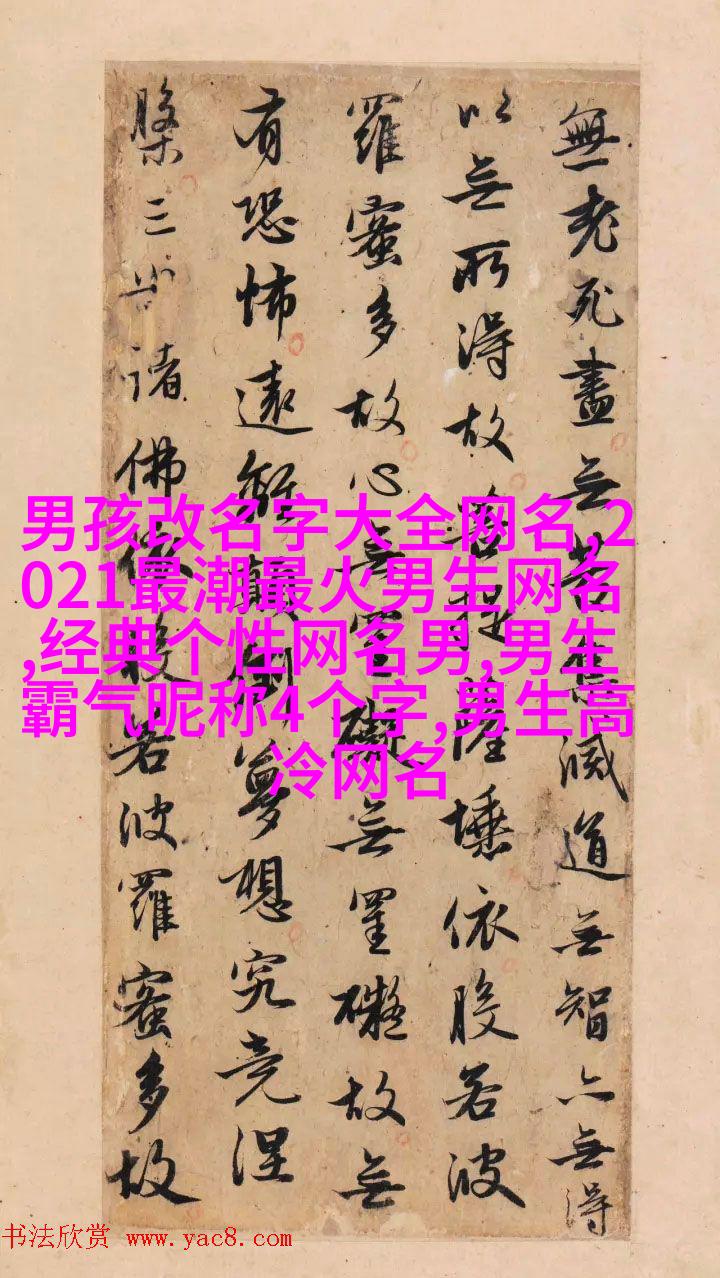 無老死盡无苦集滅道无智亦無得
以无所得故菩提薩埵依般若波
羅蜜多故心无罣礙无罣礙故无
有恐怖遠離顛倒夢想究竟涅
槃三世諸佛依般若波羅蜜多故
男孩改名字大全网名,2
021最潮最火男生网名
,经典个性网名男,男生
霸气昵称4个字,男生高
冷网名
书法欣赏 www.yac8.com